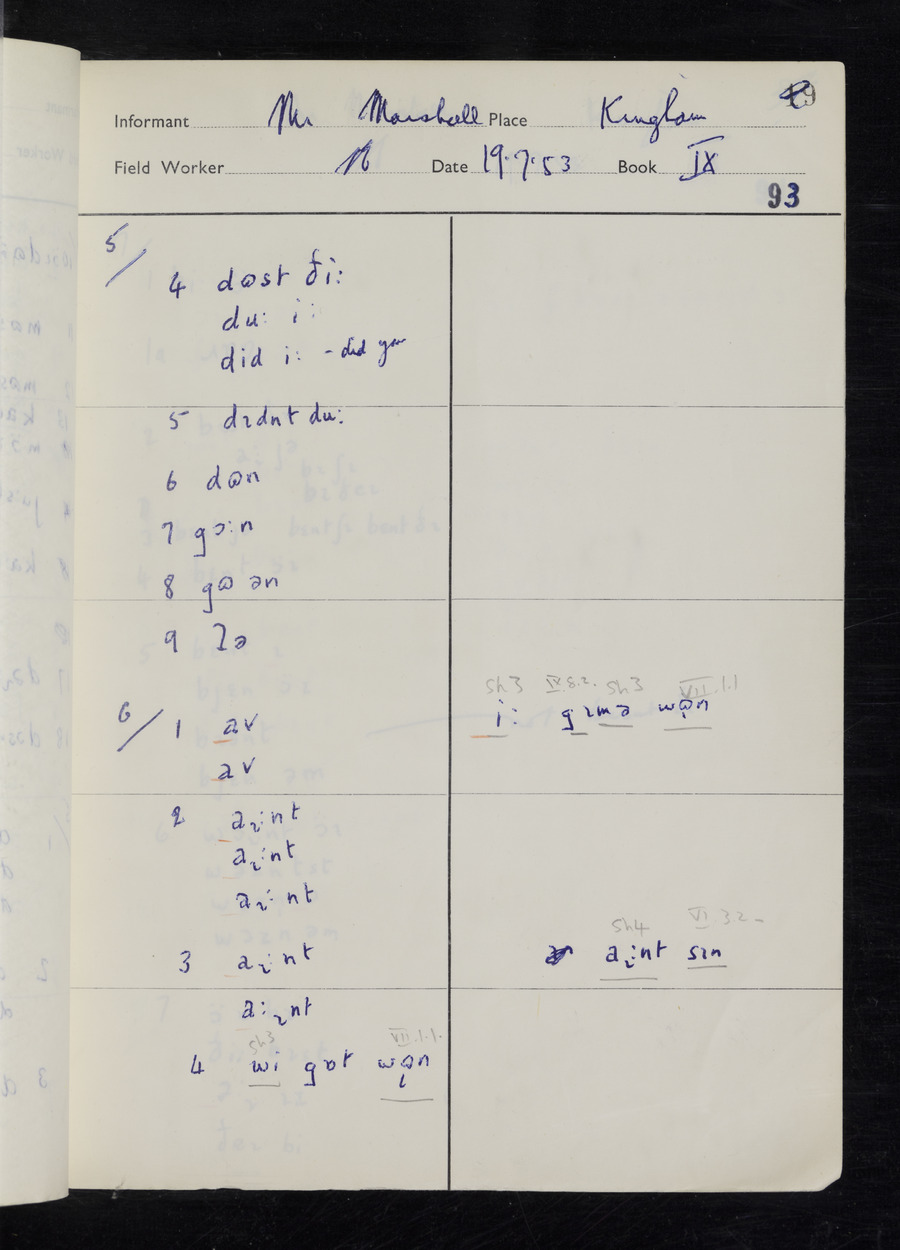 Informant Mr Marshall Place Kingham
Field Worker Date 19.7.53 Book IX
93
5/
4 dɷst ði:
du: i:
did i: - did you
5 dɪdnt du:
6 dɷn
7 gɔ:n
8 gɷ ən
9
6/ 1 av
av
sh3 IX.8.2. sh3 VII.1.1
i: gɪmə wɷ̣n
2 aɪ:nt
aɪ:nt
aɪ:nt
3 aɪ:nt
sh4 VI.3.2
aɪ:nt sɪn
a:ɪnt
sh3 VII.1.1.
4 wi gɒt wɷ̣n